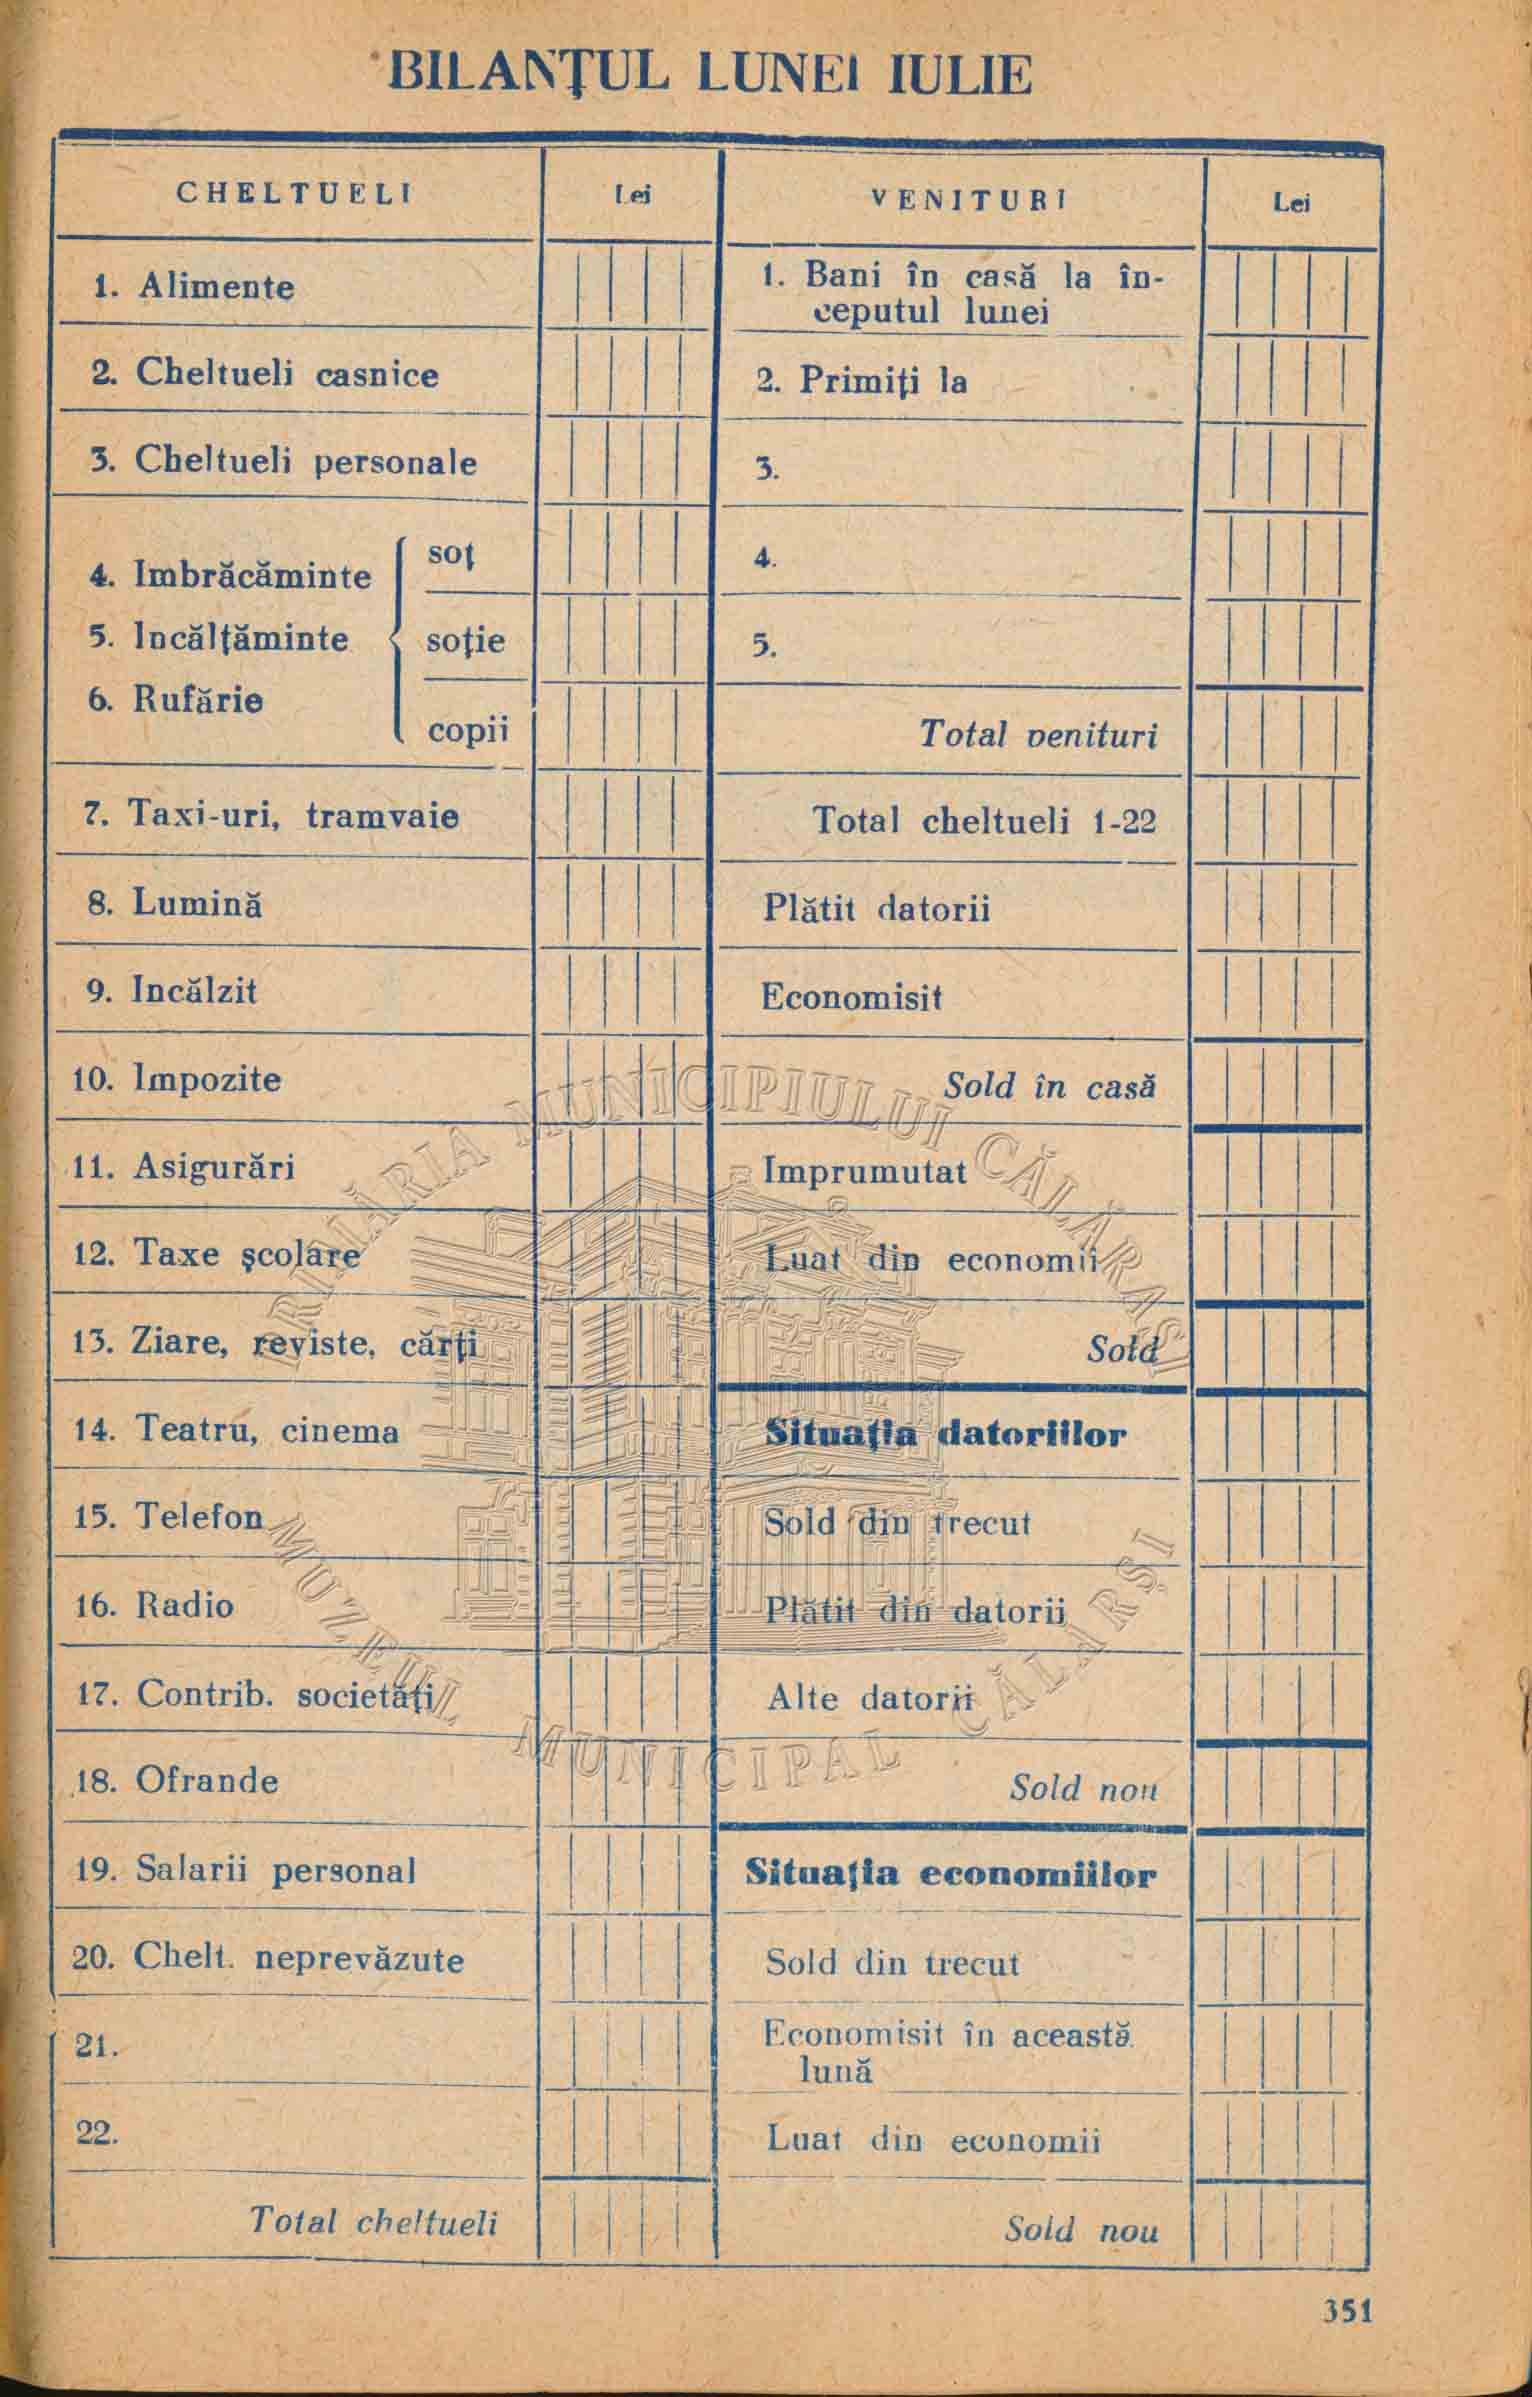 BILANȚUL LUNEI IULIE
CHELTUELI
Lei
VENITURI
Lei
1. Alimente
2. Cheltueli casnice
3. Cheltueli personale
4. Imbrăcăminte
5. Incălțăminte
6. Rufărie
soț
soție
copii
7. Taxi-uri, tramvaie
8. Lumină
9. Incălzit
10. Impozite
11. Asigurări
12. Taxe școlare
13. Ziare, reviste, cărți
14. Teatru, cinema
15. Telefon
16. Radio
17. Contrib. societăți
18. Ofrande
19. Salarii personal
20. Chelt. neprevăzute
21.
22.
Total cheltueli
1. Bani în casă la în-
ceputul lunei
2. Primiți la
3.
4.
5.
Total venituri
Total cheltueli 1-22
Plătit datorii
Economisit
Sold în casă
Imprumutat
Luat din economii
Sold
Situația datoriilor
Sold din trecut
Plătit din datorii
Alte datorii
Sold nou
Situația economiilor
Sold din trecut
Economisit în această
lună
Luat din economii
Sold nou
351
PRIMĂRIA MUNICIPIULUI CĂLĂRAȘI
MUZEUL MUNICIPAL CĂLĂRȘI